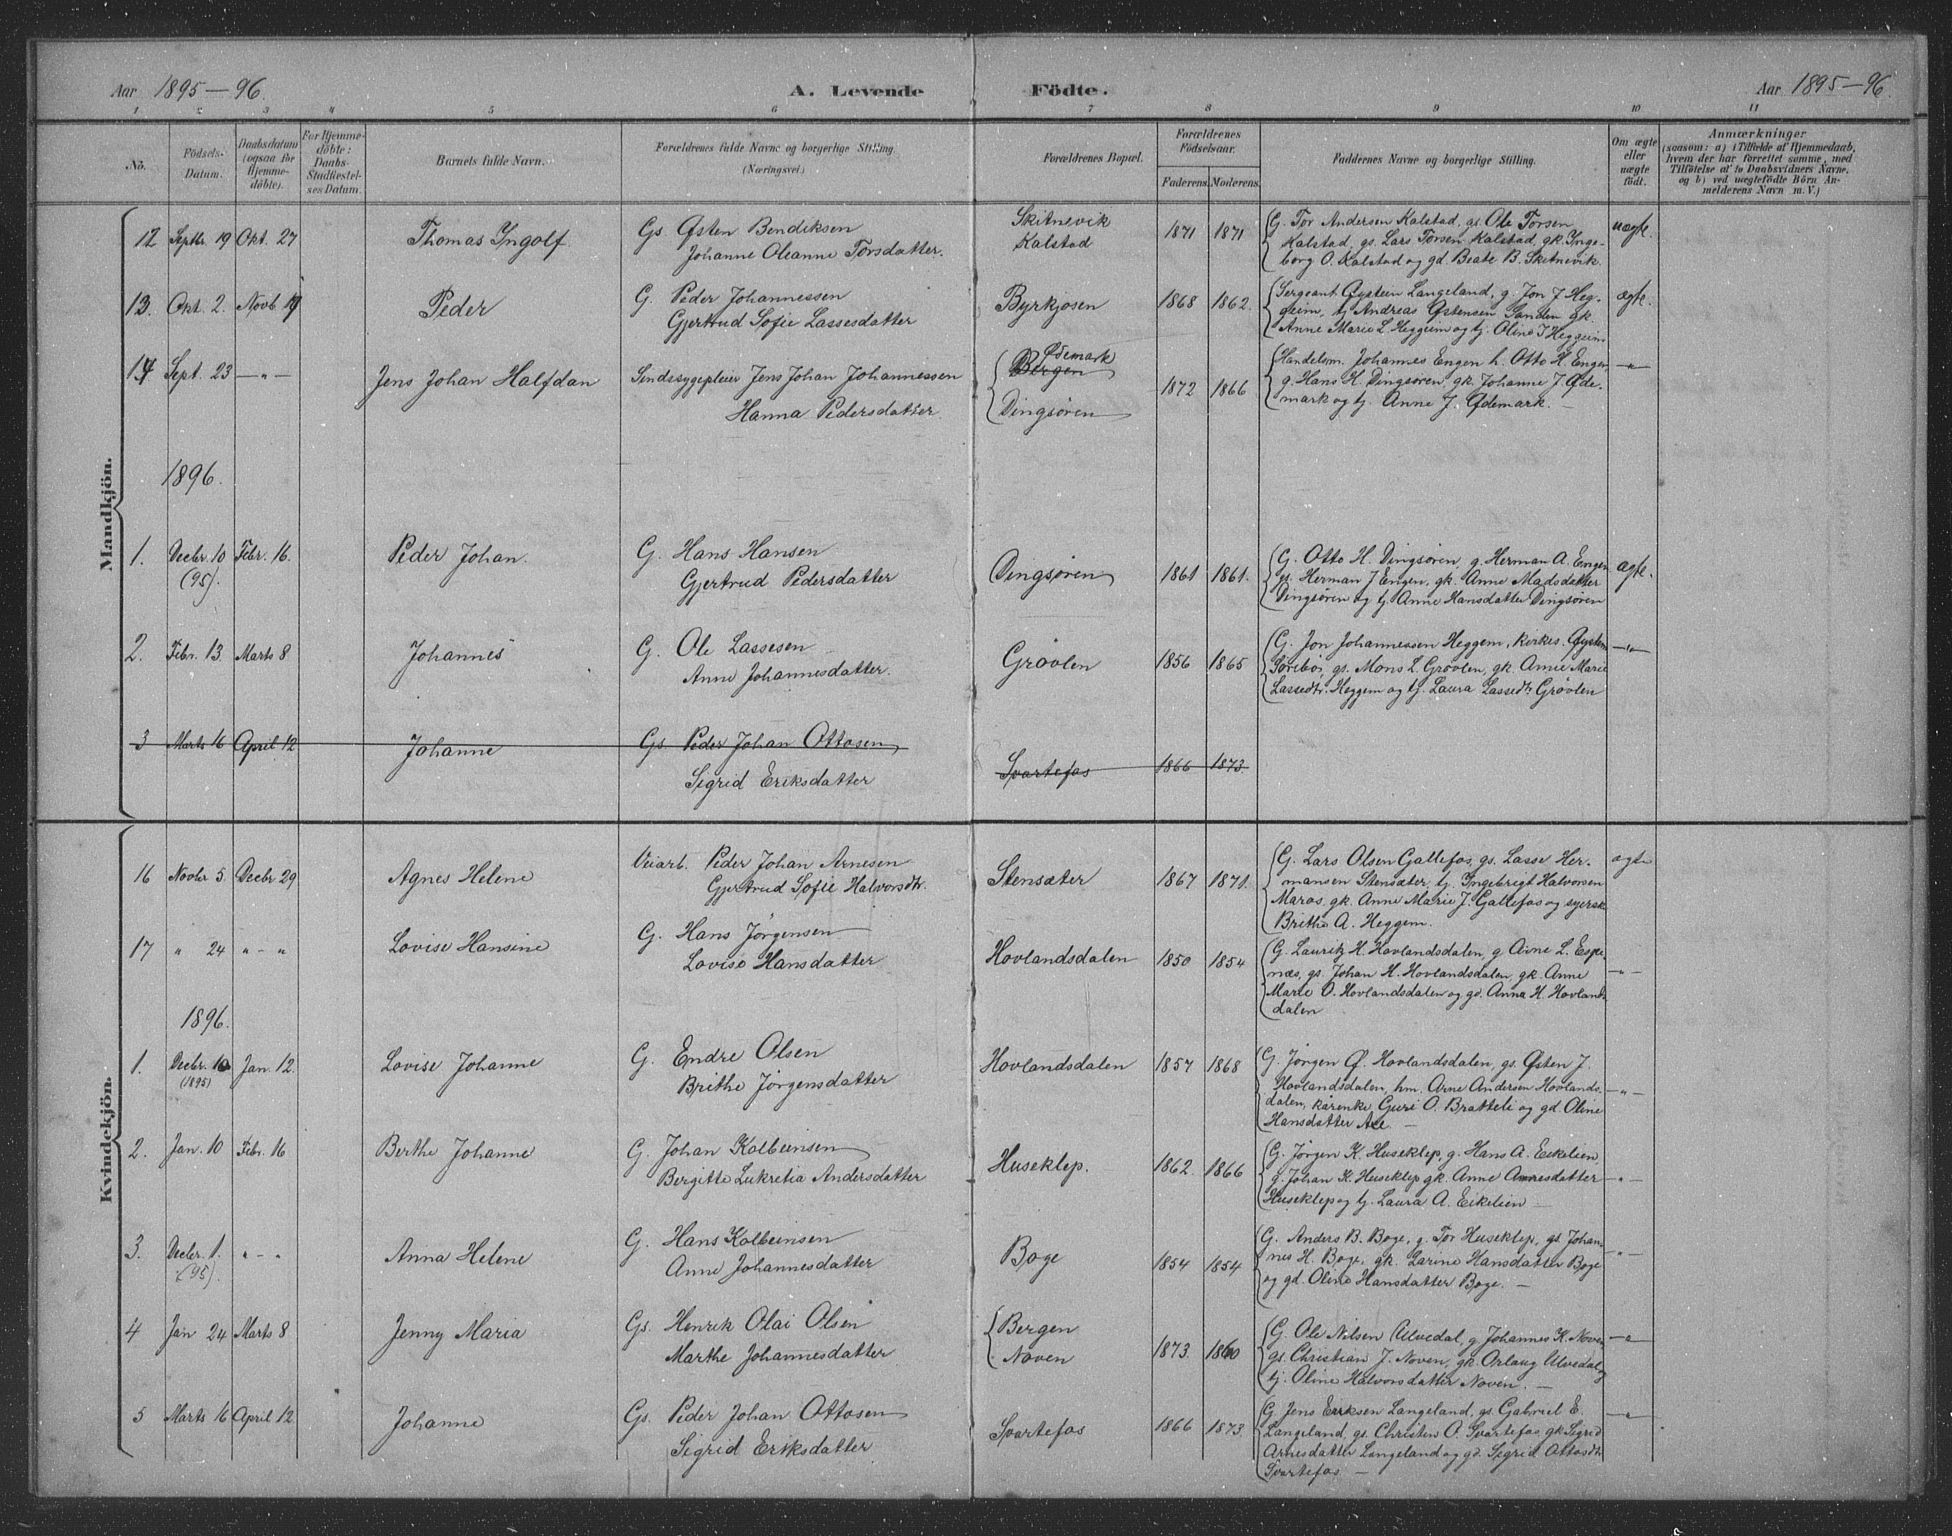 Aar 1895—96. A. Levende Födte. Aar 1895—96.
1 2 3 4 5 6 7 8 9 10 11
No. Födsels-Datum. Daabsdatum (ogsaa for Hjemmedöbte). For Hjemmedöbte: Daabs-Stadfæstelses Datum. Barnets fulde Navn. Forældrenes fulde Navne og borgerlige Stilling. (Næringsvei.) Forældrenes Bopæl. Forældrenes Födselsaar. Faderens. Moderens. Faddernes Navne og borgerlige Stilling. Om ægte eller uægte födt. Anmærkninger (saasom: a) i Tilfælde af Hjemmedaab, hvem der har forrettet samme, med Tilföielse af to Daabsvidners Navne, og b) ved uægtefödte Börn Anmelderens Navn m. V.)
Mandkjön.
12 Septbr. 19 Okt. 27 Thomas Ingolf Gs. Østen Bendiksen Skitnevik 1871 1871 G. Tor Andersen Kalstad, gs. Ole Torsen uægte.
Johanne Oleanne Torsdatter. Kalstad Kalstad, gs. Lars Torsen Kalstad, gk. Inge-
borg O. Kalstad og gd. Beate B. Skitnevik.
13. Okt. 2. Novb 17 Peder G. Peder Johannessen Byrkjosen 1868 1862. Sergeant Øystein Langeland, g. Jon J. Heg- ægte.
Gjertrud Sofie Lassesdatter geim, tj. Andreas Østensen Sanden gk.
Anne Marie L. Heggeim og tj. Oline J. Heggeim
14 Sept. 23 —"— Jens Johan Halfdan Sindssygepleier Jens Johan Johannessen Bergen Ødemark 1872 1866 Handelsm. Johannes Engen h. Otto H. Engen —"—
Hanna Pedersdatter. Dingsøren g. Hans H. Dingsøren, gk. Johanne J. Øde-
mark og tj. Anne J. Ødemark. —
1896.
1. Decbr. 10 (95). Febr. 16. Peder Johan. G. Hans Hansen Dingsøren 1861 1861. G. Otto H. Dingsøren, g. Herman A. Engen ægte.
Gjertrud Pedersdatter gs. Herman J Engen, gk. Anne Madsdatter
Dingsøren og tj. Anne Hansdatter Dingsøren
2. Febr. 13. Marts 8 Johannes G. Ole Lassesen Grøvlen 1856 1865 G. Jon Johannessen Heggem, kirkes. Øysten —"—
Anne Johannesdatter. Sørebø, gs. Mons L. Grøvlen, gk. Anne Marie
Lassedtr. Heggem og tj. Laura Lassedtr. Grøvlen
3 Marts 16 April 12 Johanne Gs. Peder Johan Ottosen Svartefos 1866 1873.
Sigrid Eriksdatter
Kvindekjön.
16 Novbr 5. Decbr 29 Agnes Helene Veiarb. Peder Johan Arnesen Stensæter 1867 1871. G. Lars Olsen Gallefos, gs. Lasse Her- ægte
Gjertrud Sofie Halvorsdtr. mansen Stensæter, tj. Ingebrigt Halvorsen
Maraas, gk. Anne Marie J. Gallefos og syersk
Brithe A. Heggem.
17 " 24 " - " Lovise Hansine G. Hans Jørgensen Hovlandsdalen 1850 1854 G. Lauritz H. Hovlandsdalen, g Arne L. Espe- —"—
Lovise Hansdatter næs, gs. Johan H. Hovlandsdalen, gk. Anne
Marie O. Hovlandsdalen og gd. Anna H. Hovlands-
dalen
1896.
1. Decbr. 10 (1895) Jan. 12. Lovise Johanne G. Endre Olsen Hovlandsdalen 1857 1868 G. Jørgen Ø. Hovlandsdalen, gs. Østen J. —"—
Brithe Jørgensdatter Hovlandsdalen, hm. Arne Andersen Hovlands-
dalen, kårenke Guri O. Bratteli og gd. Oline
Hansdatter Aae. —
2. Jan. 10 Febr. 16 Berthe Johanne G. Johan Kolbeinsen Huseklep. 1862. 1866 G. Jørgen K. Huseklep, g. Hans A. Eikelien, —"—
Bergitte Lukretia Andersdatter g. Johan K. Huseklep gk. Anne Annesdatter
Huseklep og tj. Laura A. Eikelien —
3. Decbr. 1. (95). " - " Anna Helene G. Hans Kolbeinsen Boge 1854 1854 G. Anders B. Boge, g. Tor Huseklep, gs. Johan- —"—
Anne Johannesdatter nes H. Boge, gk. Larine Hansdatter Boge
og gd. Oline Hansdatter Boge. —
4 Jan 24 Marts 8 Jenny Maria Gs. Henrik Olai Olsen Bergen 1873. 1860 G. Ole Nilsen Ulvedal, g. Johannes K. Noven —"—
Marthe Johannesdatter Noven gs. Christian J. Noven, gk. Orlaug Ulvedal og
tj. Oline Halvorsdatter Noven. —
5 Marts 16 April 12 Johanne Gs. Peder Johan Ottosen Svartefos 1866 1873. G. Jens Eriksen Langeland, gs. Gabriel E. —"—
Sigrid Eriksdatter Langeland, gs. Christen O. Svartefos, gk. Sigrid
Arnesdatter Langeland og gd. Sigrid Ottosdtr.
Svartefos. —